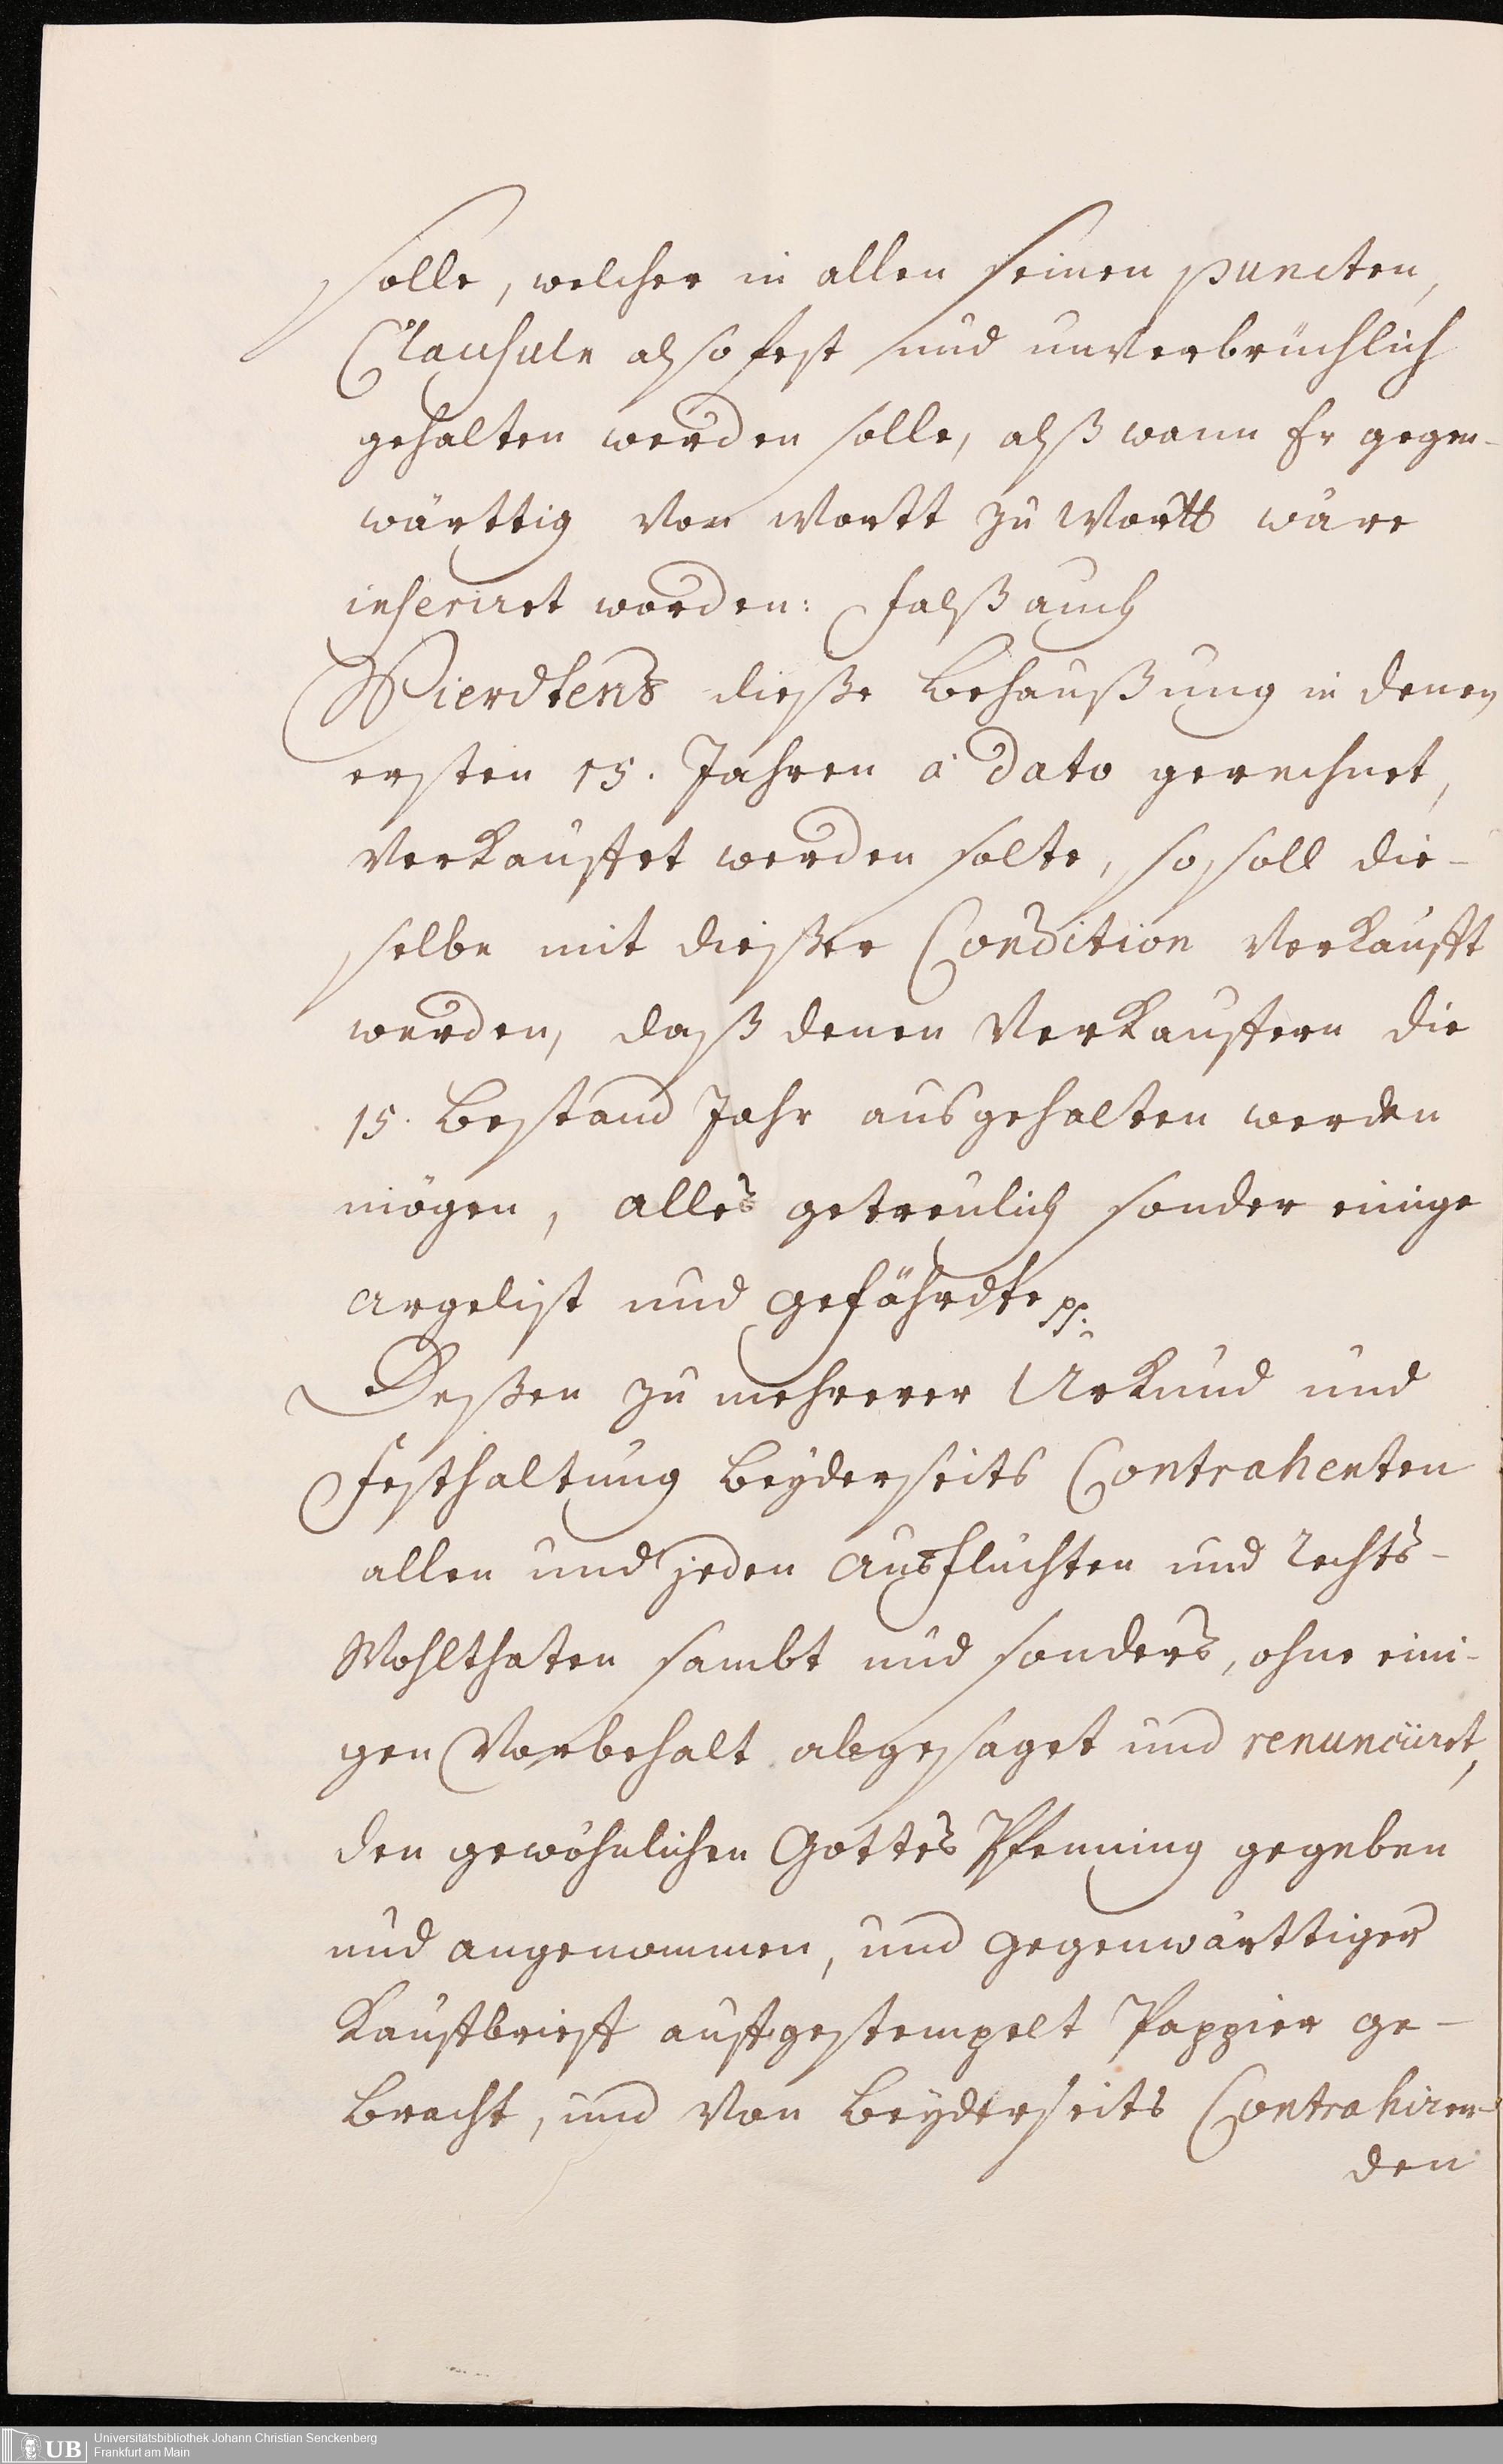 solle, welcher in allen seinen puncten,
Clausule also fest und unverbrüchlich
gehalten werden solle, alß wann Er gegen-
wärttig von Wortt zu Wortt wäre
inseriret worden: Falß auch
Vierdtens dieße Behaußung in denen
ersten 15. Jahren à dato gerechnet,
verkauffet werden solte, so soll die-
selbe mit dießer Condition verkaufft
werden, daß denen Verkauffern die
15. Bestand Jahr ausgehalten werden
mögen, alles getreulich sonder einige
Argelist und Gefährdte pp.
Deßen zu mehrerer Urkund und
Festhaltung beyderseits Contrahenten
allen und jeden Ausflüchten und Rechts-
Wohlthaten sambt und sonders, ohne eini-
gen Vorbehalt abgesaget und renunciiret,
den gewöhnlichen Gottes Pfenning gegeben
und angenommen, und gegenwärttiger
Kauffbrieff auff gestempelt Pappier ge-
bracht, und von beyderseits Contrahiren-
den
UB
Universitätsbibliothek Johann Christian Senckenberg
Frankfurt am Main